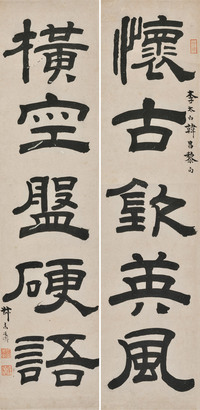 懷古欽英風
李太白韓昌黎句
橫空盤硬語